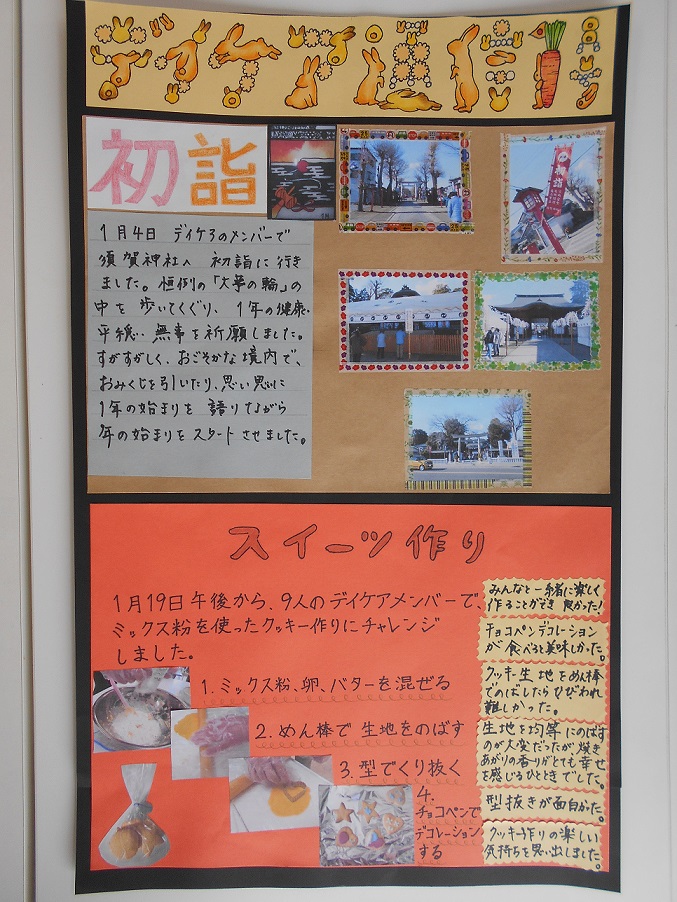 デイケア通信
初詣
1月4日 デイケアのメンバーで
須賀神社へ 初詣に行き
ました。恒例の「大茅の輪」の
中を歩いてくぐり、1年の健康・
平穏・無事を祈願しました。
すがすがしく、おごそかな境内で、
おみくじを引いたり、思い思いに
1年の始まりを語りながら
年の始まりをスタートさせました。
初詣
スイーツ作り
1月19日午後から、9人のデイケアメンバーで、
ミックス粉を使ったクッキー作りにチャレンジ
しました。
1.ミックス粉、卵、バターを混ぜる
2.めん棒で生地をのばす
3.型でくり抜く
4.
チョコペンで
デコレーション
する
みんなと一緒に楽しく
作ることができ良かった!
チョコペンデコレーション
が食べると美味しかった。
クッキー生地をめん棒
でのばしたらひびわれ
難しかった。
生地を均等にのばす
のが大変だったが焼き
あがりの香りがとても幸せ
を感じるひとときでした。
型抜きが面白かった。
クッキー作りの楽しい
気持ちを思い出しました。